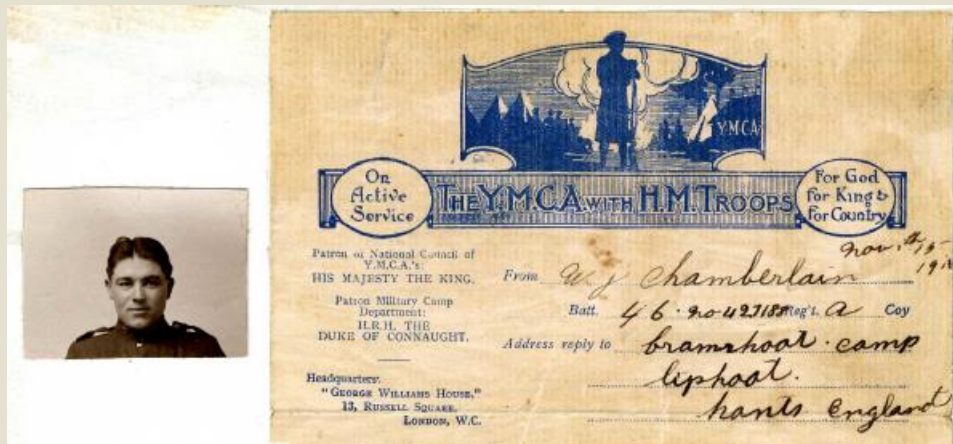 On
Active
Service
THE Y.M.C.A. WITH H.M. TROOPS
For God
For King &
For Country
YMCA
Patron of National Council of
Y.M.C.A.'s:
HIS MAJESTY THE KING.
Patron Military Camp
Department:
H.R.H. THE
DUKE OF CONNAUGHT.
Headquarters:
"GEORGE WILLIAMS HOUSE,"
13, RUSSELL SQUARE,
LONDON, W.C.
Nov. 15
From W J Chamberlain
Batt. 46 · no Reg't. A Coy
Address reply to bramshoot · camp
liphoot.
hants England